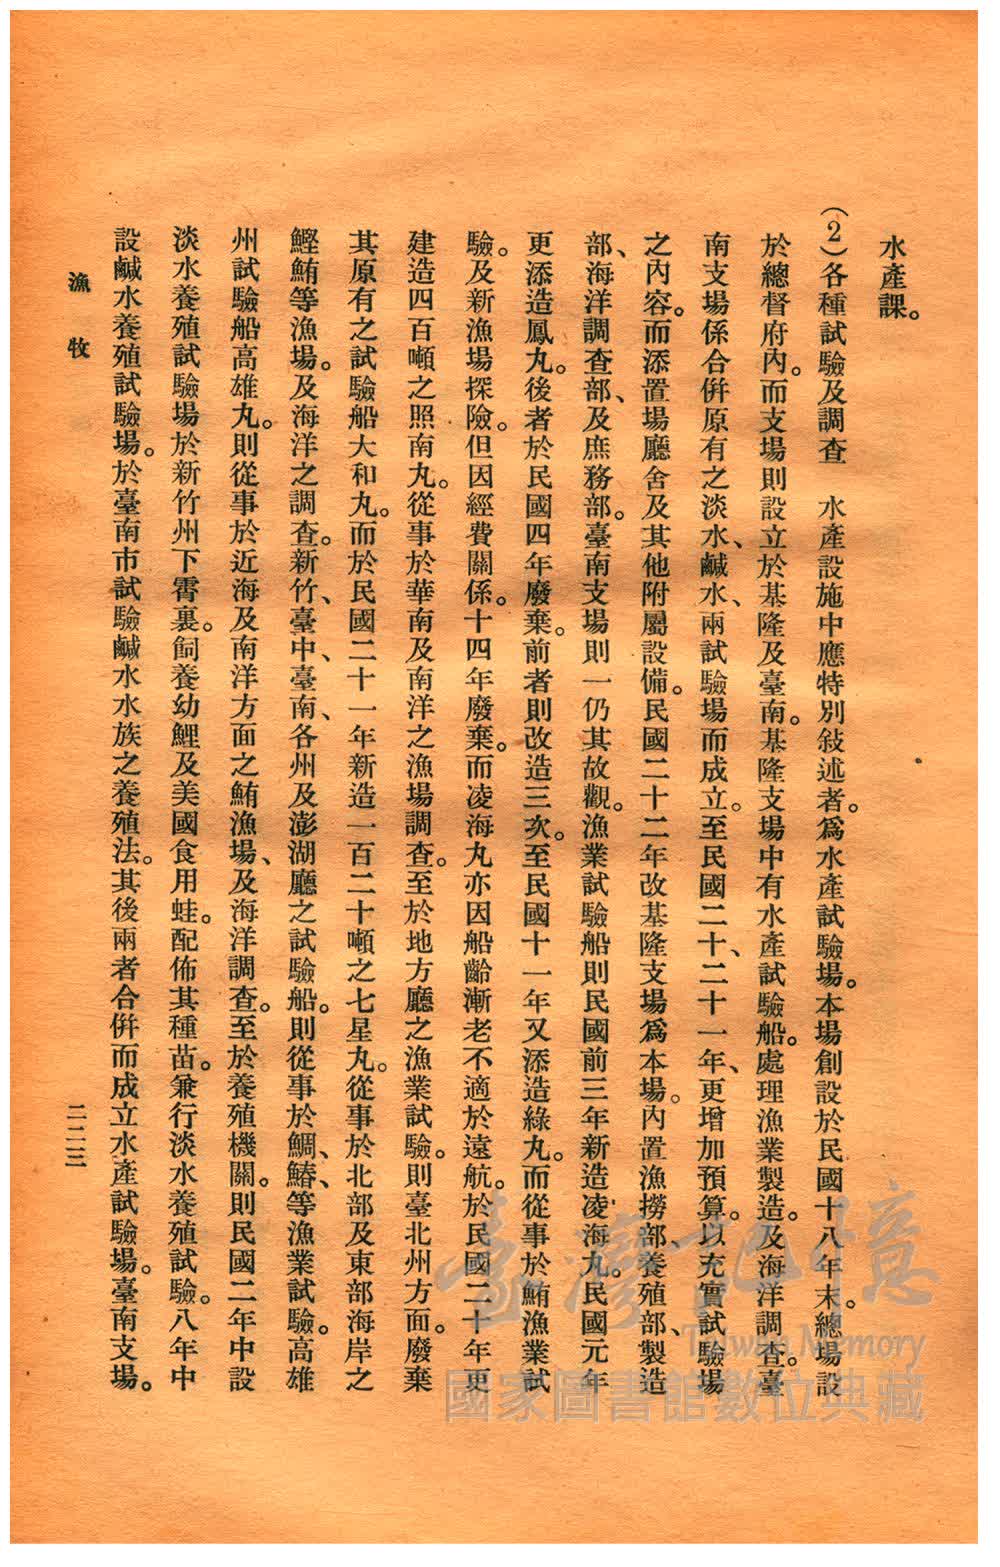 水產課。
(2)各種試驗及調查　水產設施中應特別敍述者。爲水產試驗場。本場創設於民國十八年末。總場設
於總督府內。而支場則設立於基隆及臺南。基隆支場中有水產試驗船。處理漁業製造。及海洋調查。臺
南支場係合併原有之淡水、鹹水、兩試驗場而成立。至民國二十、二十一年、更增加預算。以充實試驗場
之內容。而添置場廳舍及其他附屬設備。民國二十二年改基隆支場爲本場。內置漁撈部、養殖部、製造
部、海洋調查部、及庶務部。臺南支場則一仍其故觀。漁業試驗船則民國前三年新造凌海丸。民國元年
更添造鳳丸。後者於民國四年廢棄。前者則改造三次。至民國十一年又添造綠丸。而從事於鮪漁業試
驗。及新漁場探險。但因經費關係。十四年廢棄。而凌海丸亦因船齡漸老不適於遠航。於民國二十年更
建造四百噸之照南丸。從事於華南及南洋之漁場調查。至於地方廳之漁業試驗。則臺北州方面。廢棄
其原有之試驗船大和丸。而於民國二十一年新造一百二十噸之七星丸。從事於北部及東部海岸之
鰹鮪等漁場。及海洋之調查。新竹、臺中、臺南、各州及澎湖廳之試驗船。則從事於鯛、鰆、等漁業試驗。高雄
州試驗船高雄丸。則從事於近海及南洋方面之鮪漁場、及海洋調查。至於養殖機關。則民國二年中設
淡水養殖試驗場於新竹州下霄裏。飼養幼鯉及美國食用蛙。配佈其種苗。兼行淡水養殖試驗。八年中
設鹹水養殖試驗場。於臺南市試驗鹹水水族之養殖法。其後兩者合併而成立水產試驗場。臺南支場。
漁牧
二二三
臺灣記憶
Taiwan Memory
國家圖書館數位典藏